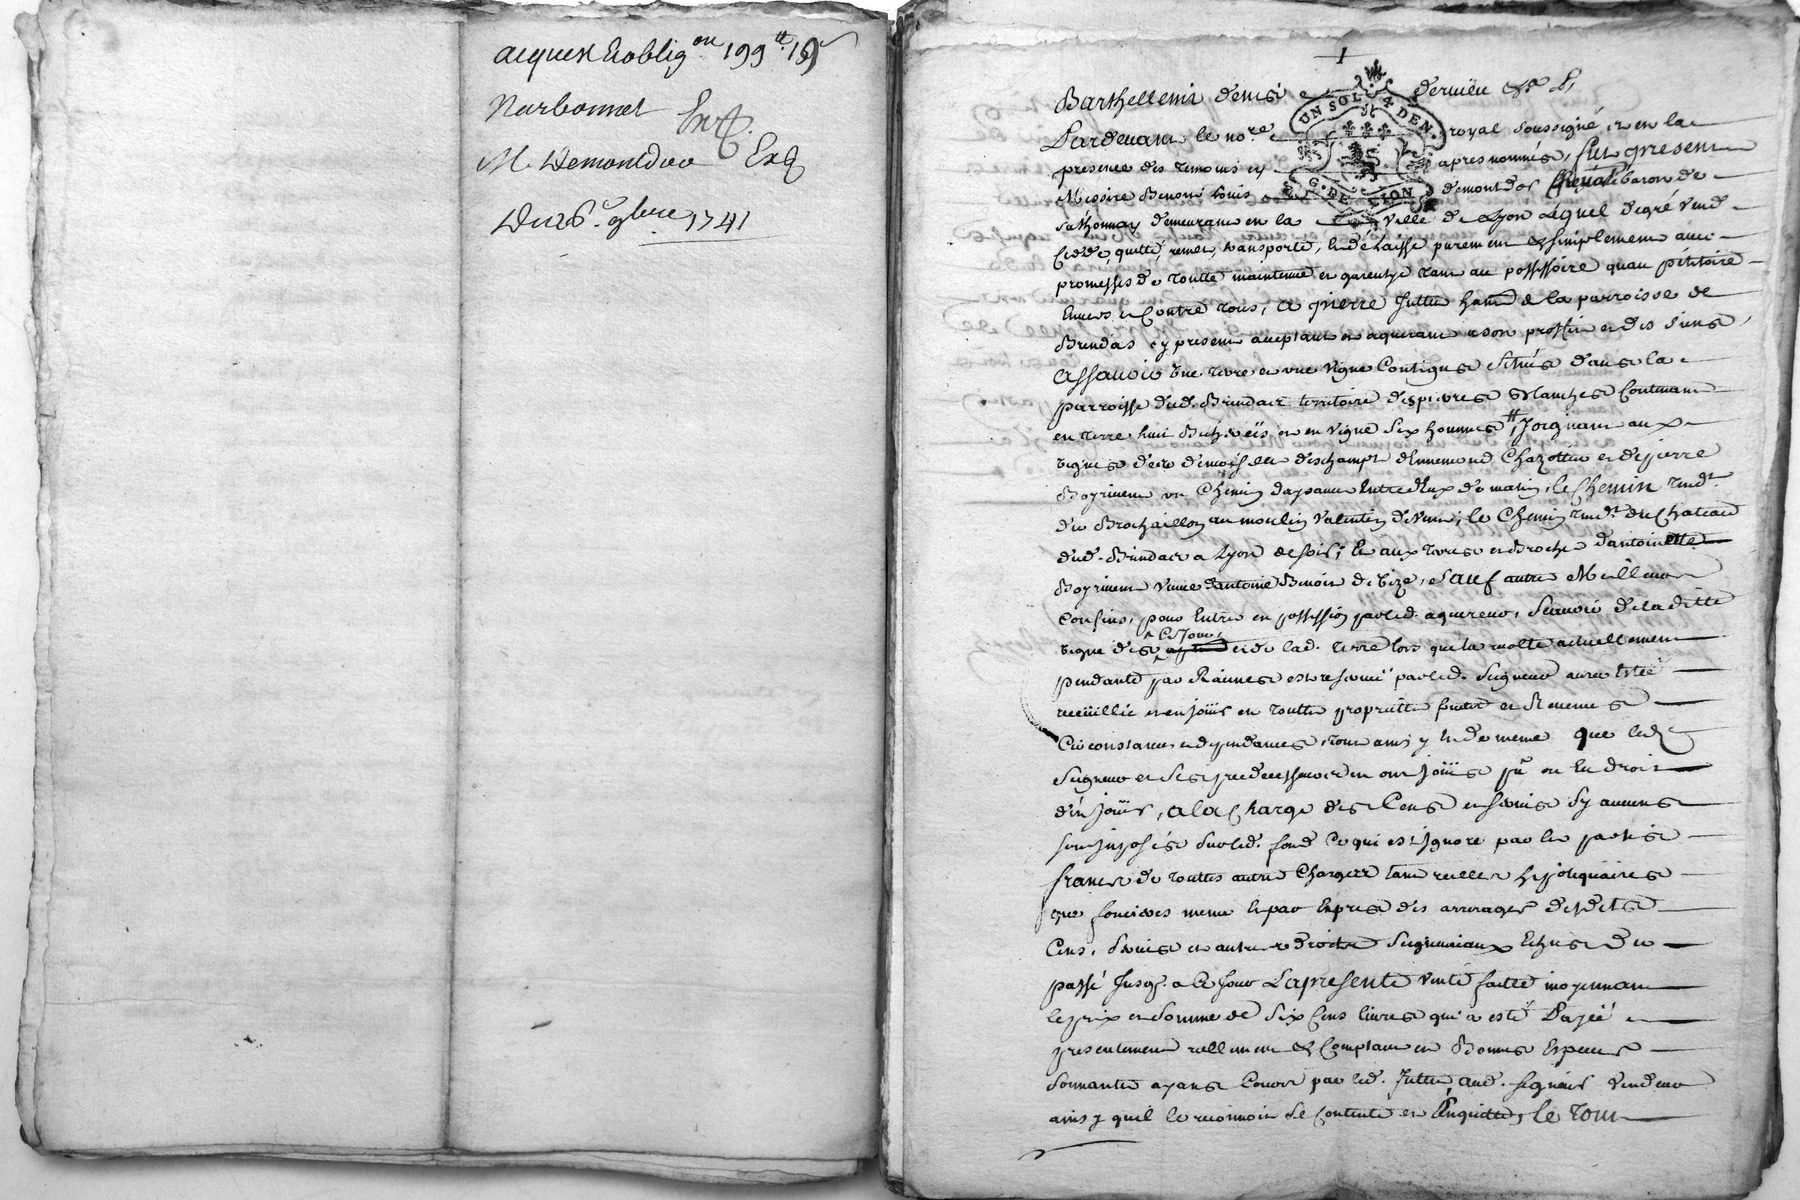 acquer et obligon 199tt 19s
Narbonnet
M. Demontdor Exp
Du 26e 9bre 1741
1
Barthellemi
UN SOL 4 DEN.
G. DE LION
Pardevant le nore royal soussigné et en la
presence des temoins cy apres nommés, fut present
Messire Benoist Louis demontdor baron de
demeurant en la ville de Lyon Lequel degré vend
cedde, quitte, remet, transporte, et délaisse purement et simplement avec
promesses de toutte maintenue et garentye tant au possessoire quau petitoire
Envers et Contre tous, A pierre Juttet hant de la parroisse de
Brindas cy present acceptant et aquerant a son proffit et des siens,
Assavoir Une terre et une vigne Contigues Situés dans la
parroisse dud. Brindas territoire des pierres blanches Contenant
en terre huit Bicherées et en vigne Six hommées, Joignant aux
vignes des demoiselles deschamps dEnnemond Chazottier et de pierre
Boyrivent un Chemin dapsance Entredeux de matin, le Chemin tendt
du Brochaillon au moulin Valentin de vent, le Chemin tendt du Chateau
dud. Brindas a Lyon de soir, Et aux terres et Broche dantoinette
Boyrivent veuve dantoine Benoist de bize, Sauf autre Meilleurs
Confins, pour Entrer en possession par led. aquereur, Scavoir de laditte
vigne des Ce Jour, et de lad. terre lors que la recolte actuellement
pendante par Racines et reservée par led. Seigneur aura Esté
recueillie et en jouir en toutte proprietté fruits et Revenus
Circonstances et dependances, tout ainsy Et de meme que led.
Seigneur et Ses predecesseurs en ont jouis pu ou Eu droit
d'en jouir, a la Charge des Cens et servis Sy aucuns
Sont imposés Sur led. fond Ce qui est ignoré par les parties
francs de touttes autres Charges tant reelles hypotequaires
que foncieres meme Et par Expres des arrerages desdits
Cens, Servis et autres droits Seigneuriaux Echus du
passé Jusq. a Ce Jour La presente vente faitte moyennant
le prix et Somme de Six Cens livres qui a esté Payée
presentement reellement et Comptant en Bonnes Especes
Sonnantes ayans Cours par led. Juttet aud. Seigneur vendeur
ainsy quil le reconnoit Se Contente et Enquitte, le tout